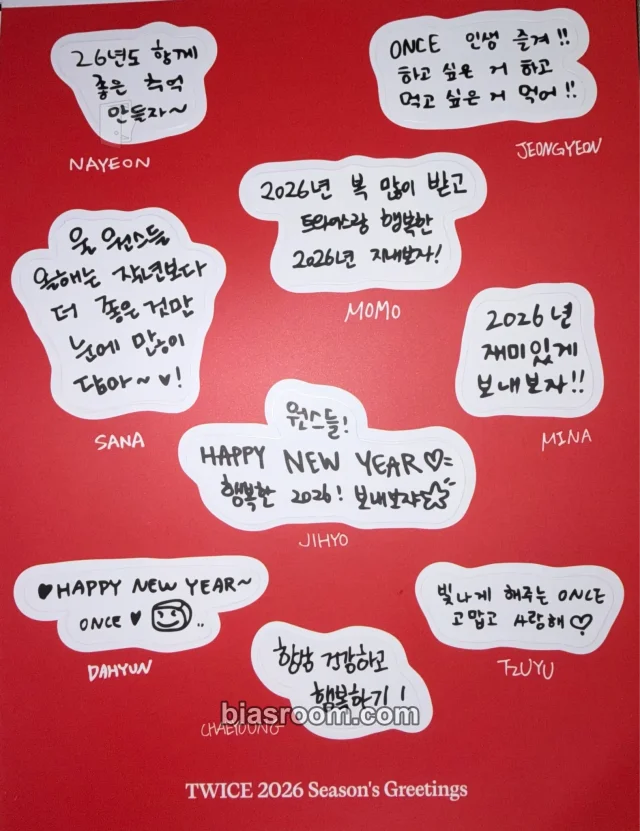 26년도 함께
좋은 추억
만들자~
NAYEON
ONCE 인생 즐겨!!
하고 싶은 거 하고
먹고 싶은 거 먹어!!
JEONGYEON
2026년 복 많이 받고
트와이스랑 행복한
2026년 지내보자!
MOMO
울 원스들
올해는 작년보다
더 좋은 것만
눈에 많이
담아~♥!
SANA
2026년
재미있게
보내보자!!
MINA
원스들!
HAPPY NEW YEAR♡=
행복한 2026! 보내보자☆
JIHYO
♥HAPPY NEW YEAR~
ONCE♥ ..
DAHYUN
빛나게 해주는 ONCE
고맙고 사랑해♡
TZUYU
항상 건강하고
행복하기!
CHAEYOUNG
biasroom.com
TWICE 2026 Season's Greetings